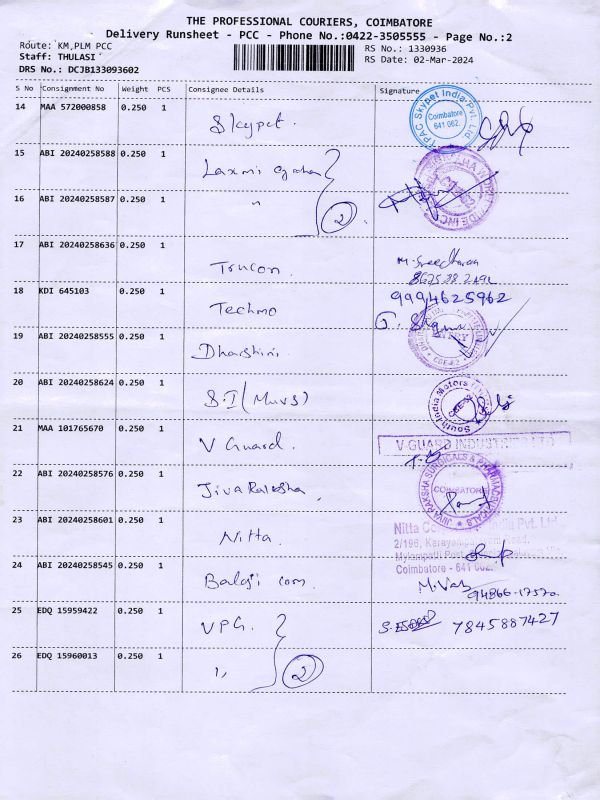 THE PROFESSIONAL COURIERS, COIMBATORE
Delivery Runsheet - PCC - Phone No.:0422-3505555 - Page No.:2
Route: KM,PLM PCC
RS No.: 1330936
Staff: THULASI
RS Date: 02-Mar-2024
DRS No.: DCJB133093602
S No Consignment No Weight PCS Consignee Details Signature
14 MAA 572000858 0.250 1
Skypet.
Skypet India Pvt. Ltd
Coimbatore
641 062.
15 ABI 20240258588 0.250 1
Laxmi
16 ABI 20240258587 0.250 1
" 2.
17 ABI 20240258636 0.250 1
Trucon. M. Sreedharan
18 KDI 645103 0.250 1 9994625962
Techmo
19 ABI 20240258555 0.250 1
Dharshini.
20 ABI 20240258624 0.250 1
S.I (Muvs) South India Motors
21 MAA 101765670 0.250 1
V Guard. V GUARD INDUSTRIES LTD
22 ABI 20240258576 0.250 1
JivaRaksha JIVA RAKSHA SURGICALS & PHARMACEUTICALS
COIMBATORE
23 ABI 20240258601 0.250 1
Nitta Nitta India Pvt. Ltd.
2/196,
Mylampatti Post
24 ABI 20240258545 0.250 1 Coimbatore - 641 062
Balaji com.
25 EDQ 15959422 0.250 1
VPG. 7845887427
26 EDQ 15960013 0.250 1
" 2